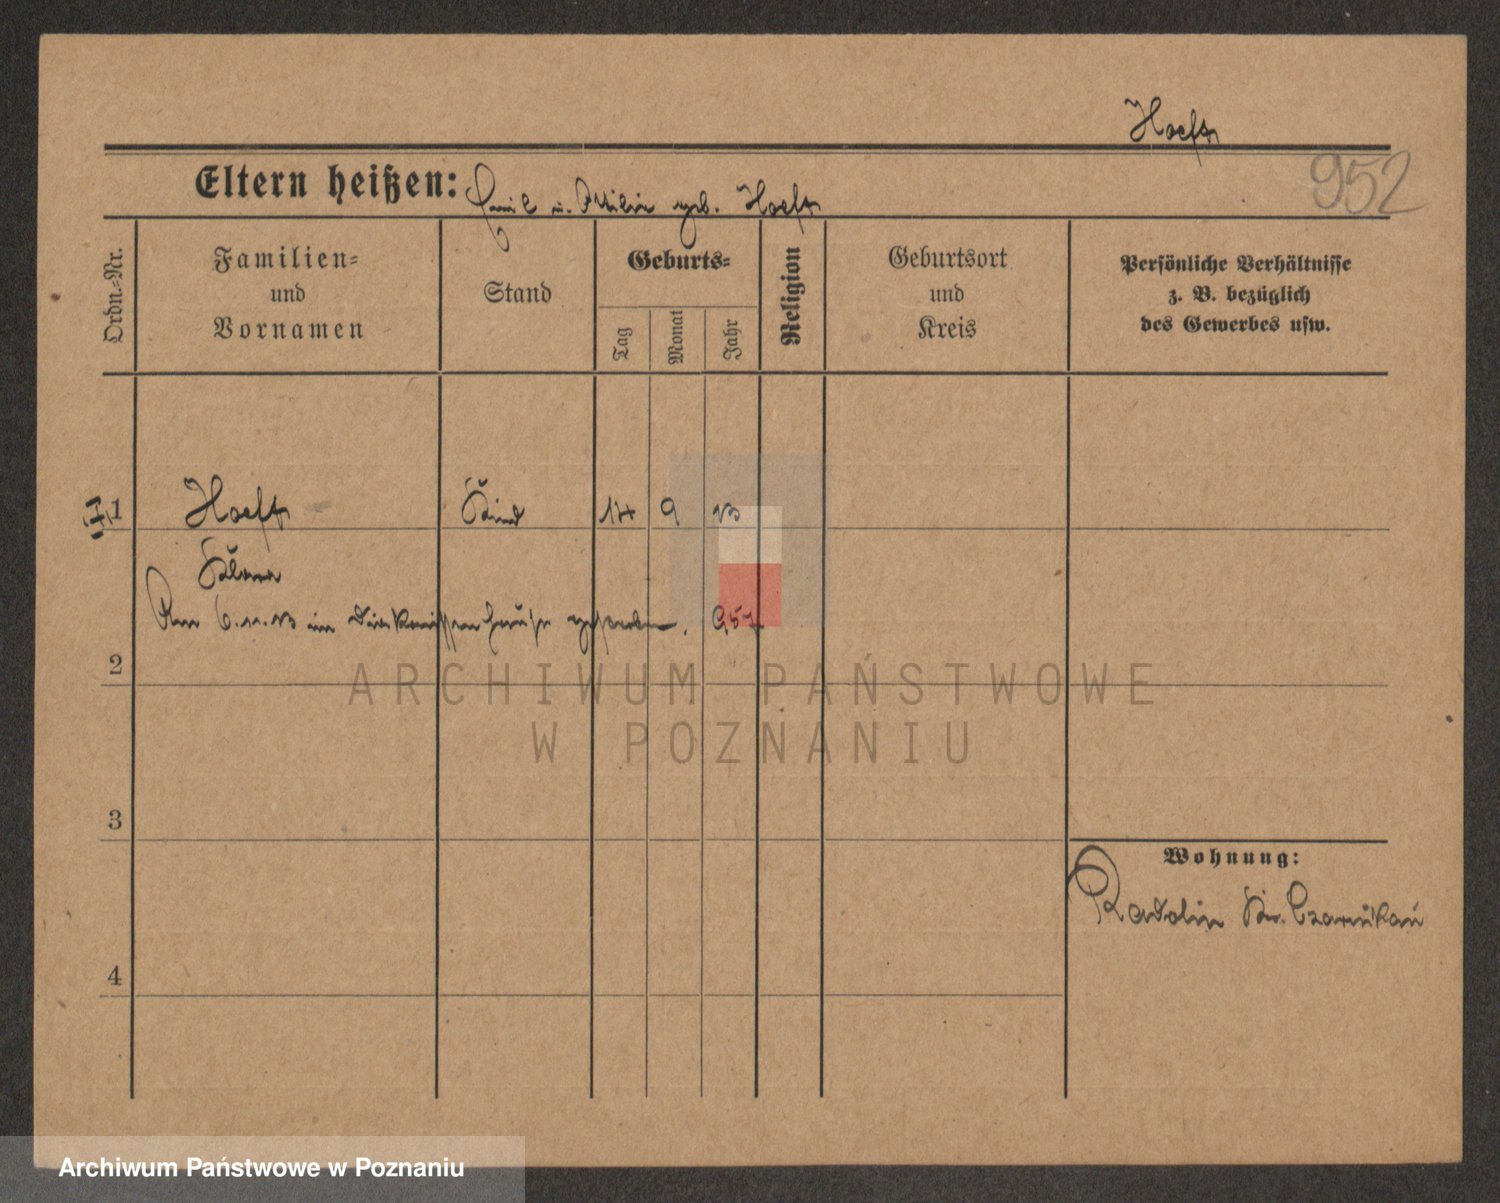 Hoeft
952
Eltern heißen: Emil u. Ottilie geb. Hoeft
Ordn.-Nr.
Familien-
und
Vornamen
Stand
Geburts-
Tag
Monat
Jahr
Religion
Geburtsort
und
Kreis
Persönliche Verhältnisse
z. B. bezüglich
des Gewerbes usw.
1 Hoeft Kind 14 9 13
Klara
Am 6.11.13 im Diakonissenhause gestorben.
2
ARCHIWUM PAŃSTWOWE
W POZNANIU
3
Wohnung:
Radolin Kr. Czarnikau
4
Archiwum Państwowe w Poznaniu